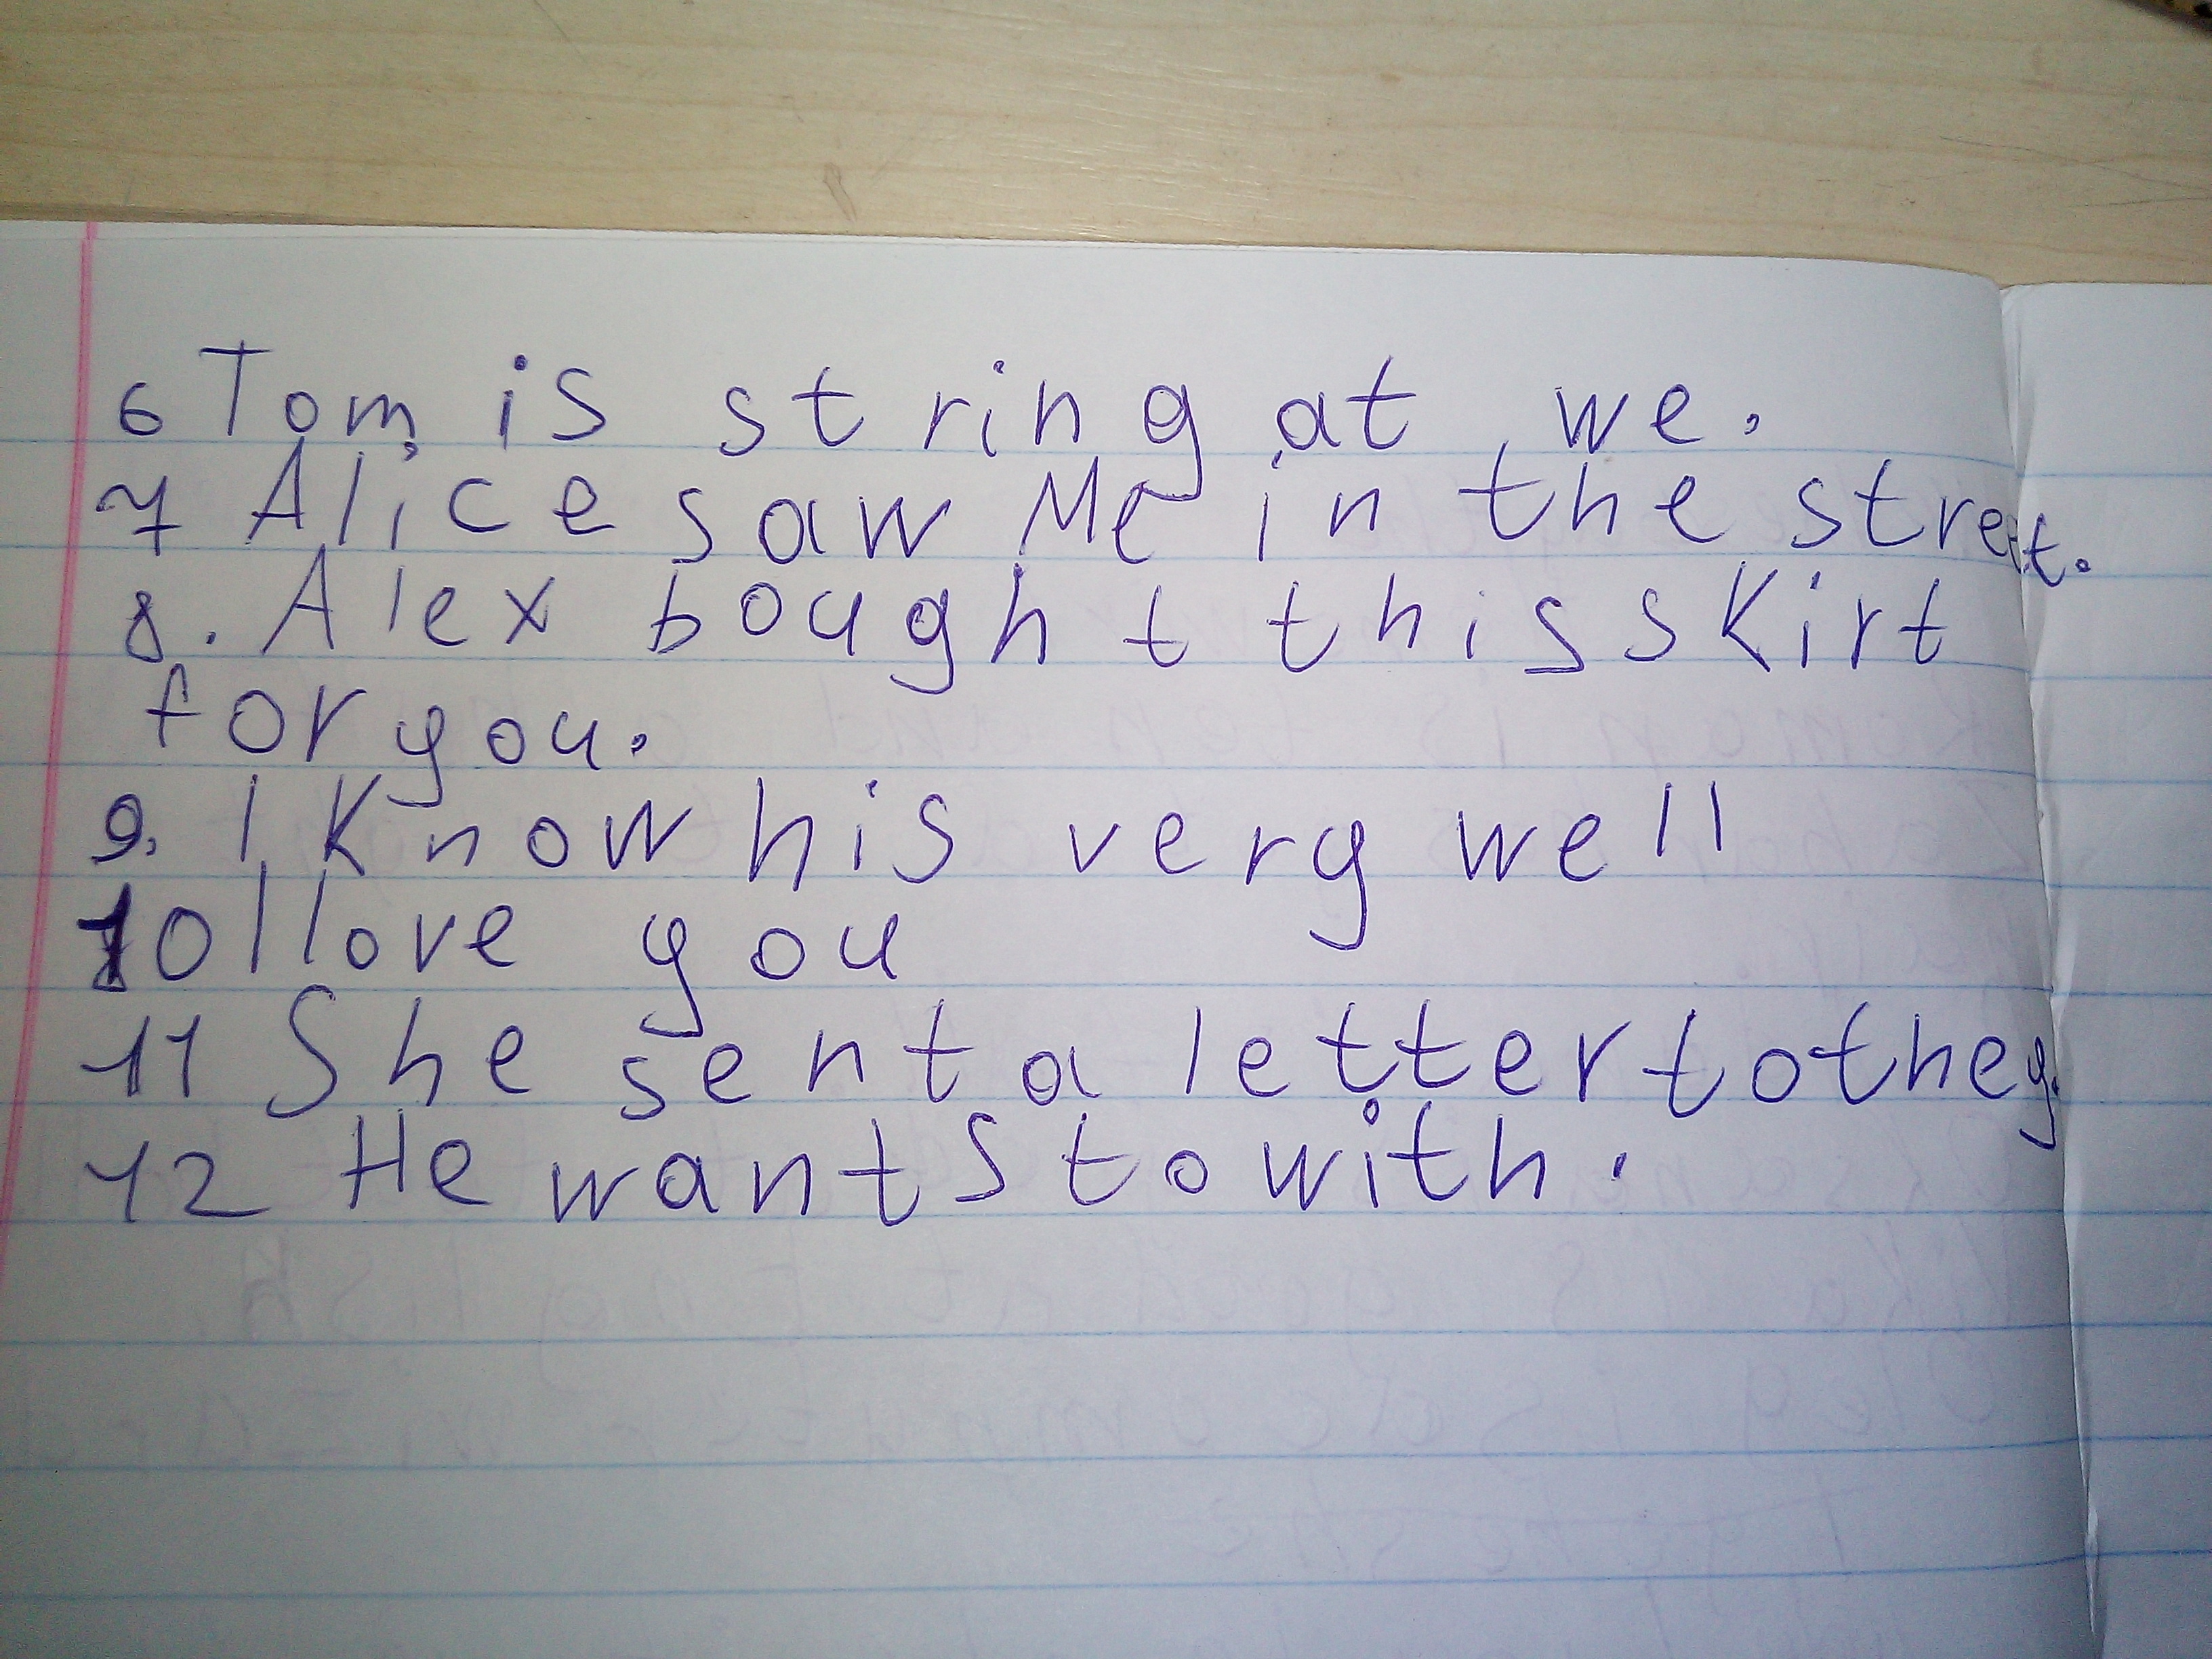 6 Tom is string at we.
7 Alice saw Me in the street.
8. Alex bought this skirt
for you.
9. I Know his very well
10 I love you
11 She sent a letter to they.
12 He wants to with.